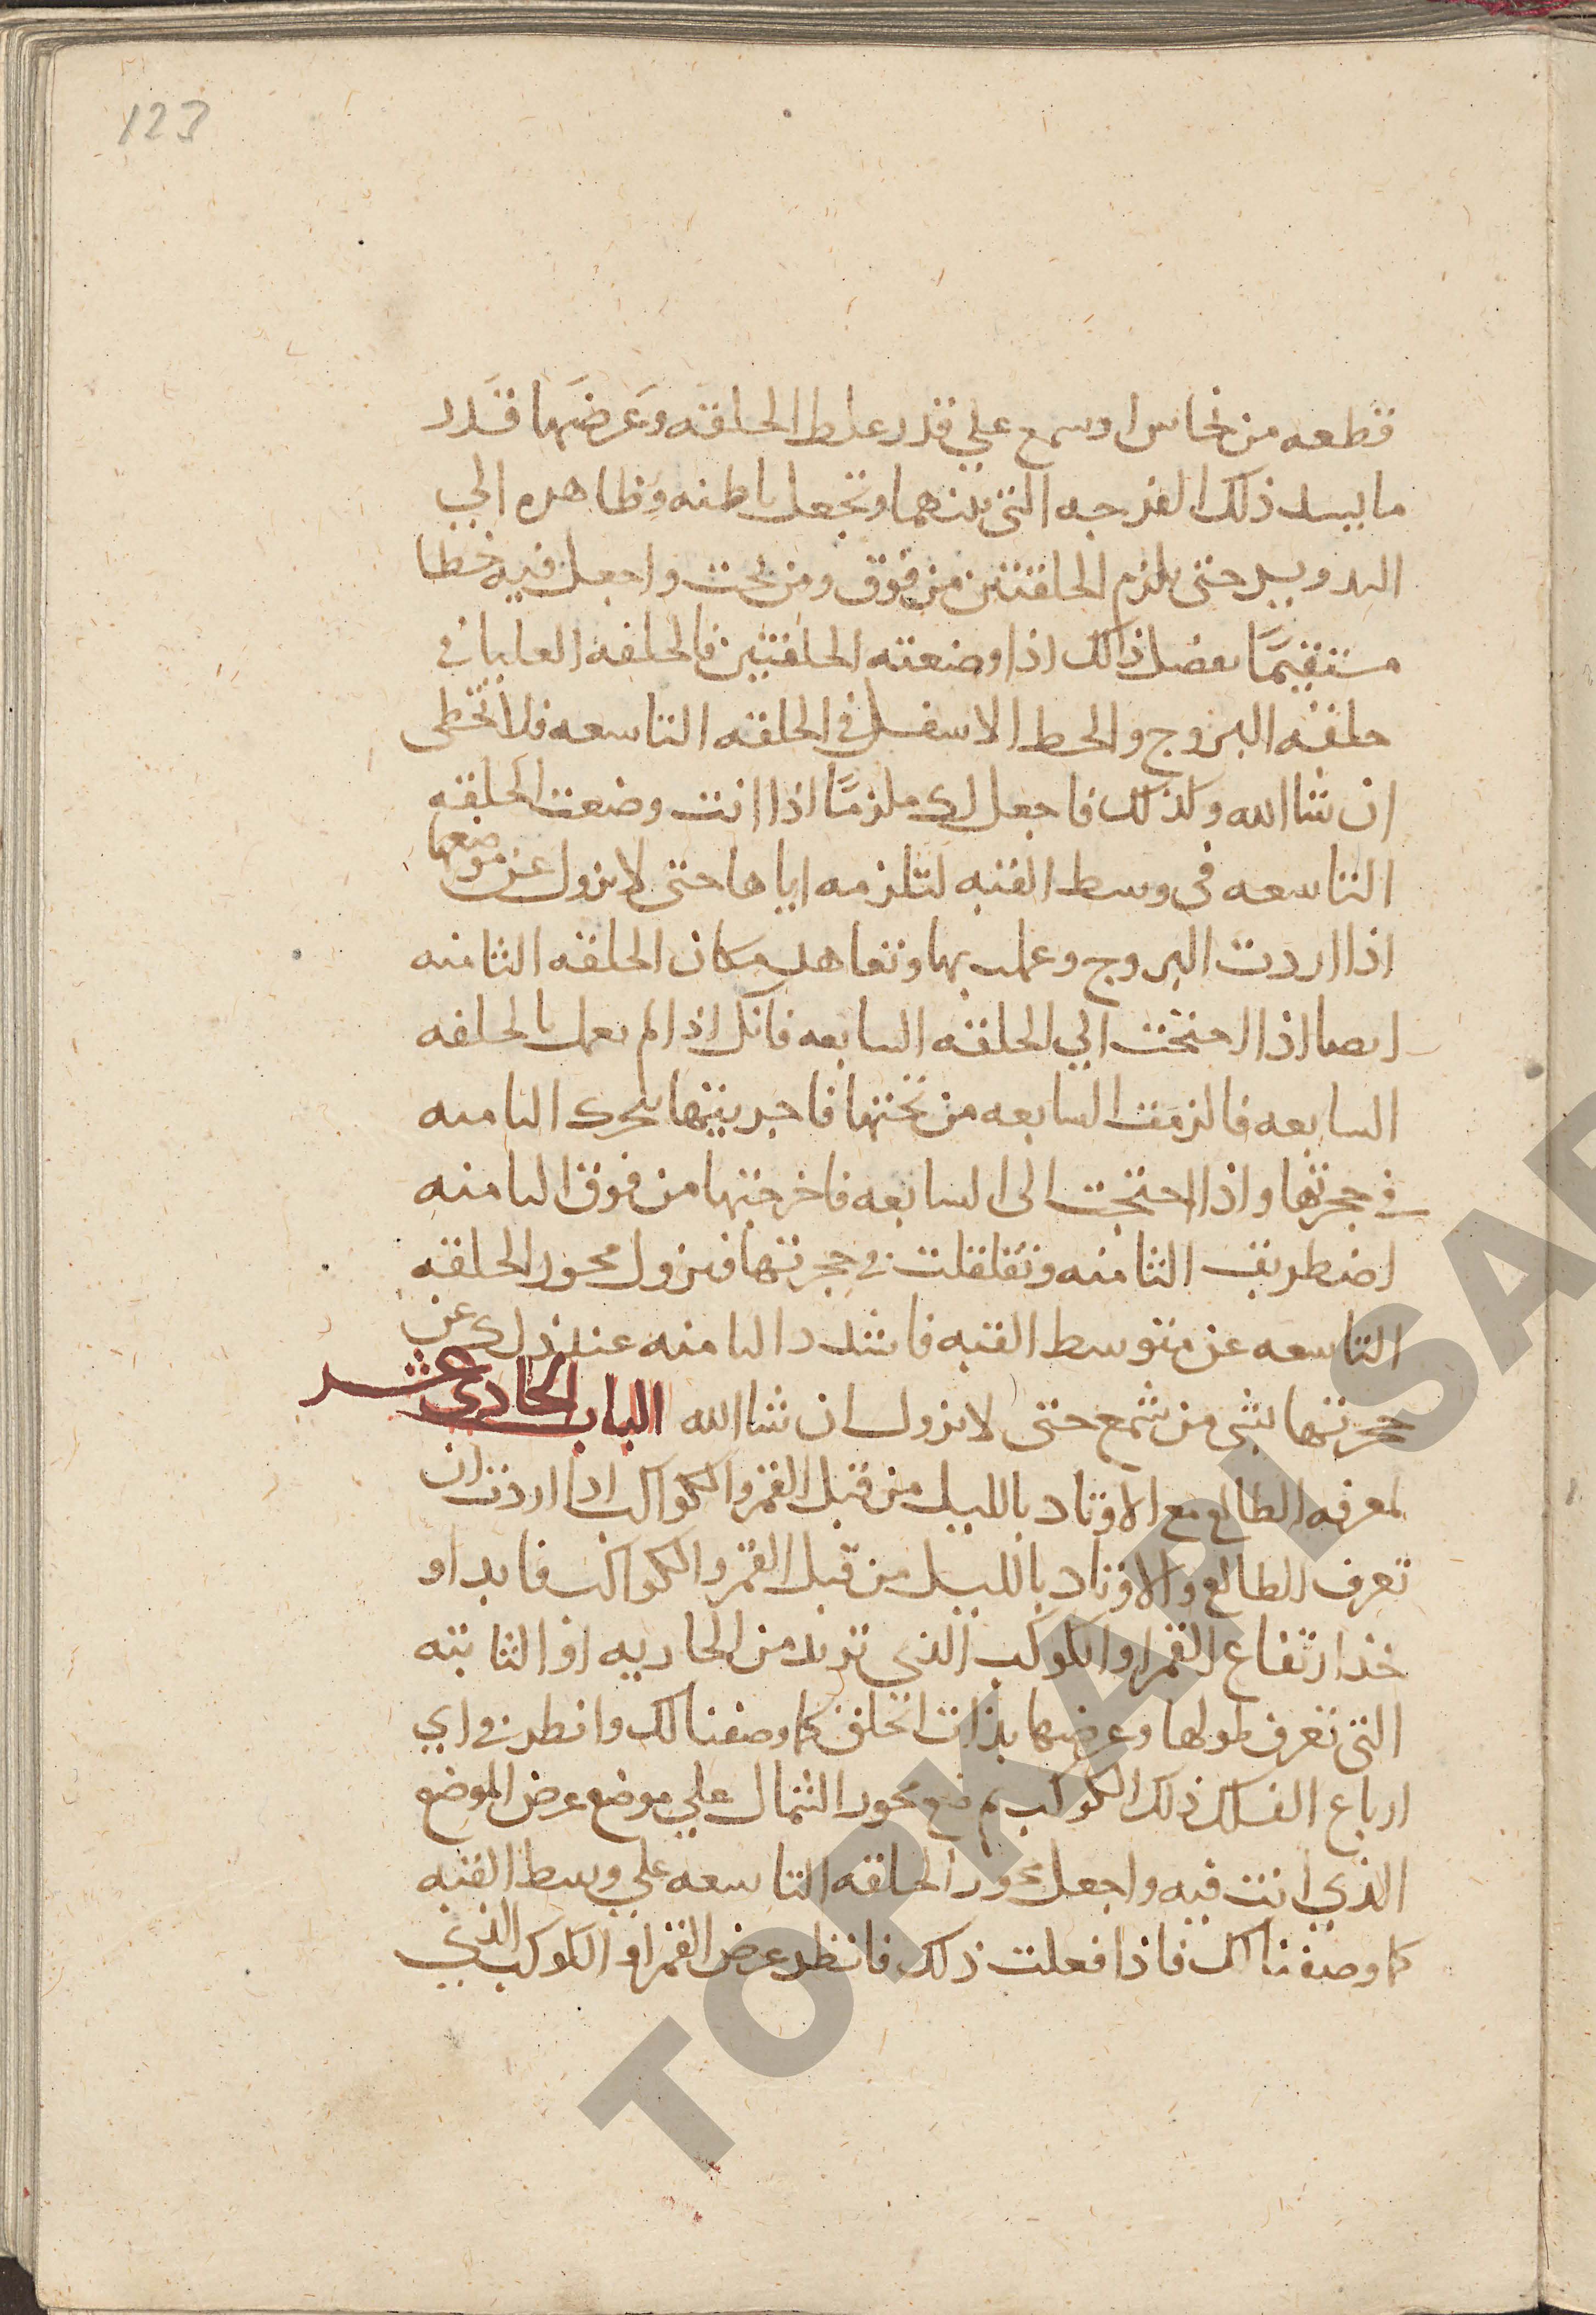 123
قطعه من نحاس او سمع علي قدر غلط الحلقه وعَرضَها قَدر
ما يسد ذلك الفرجه التي بينهما وتجعل باطنه وظاهره الي
التدوير حتى يلزم الحلقتين من فوق ومن تحت واجعل فيه خطا
مستقيمًا بفصل ذلك اذا وضعته الحلقتين فالحلقه العليا في
حلقه البروج والخط الاسفل في الحلقه التاسعه فلا تخطى
ان شا الله وكذلك فاجعل لك ملزمًا اذا انت وضعت الحلقه
التاسعه فى وسط القبه لتلزمه اياها حتى لا يزول عن موضعها
اذا اردت البروج وعملت بها وتعاهد مكان الحلقه الثامنه
ايضا اذا احتجت الي الحلقه السابعه فانك اذا لم تعمل بالحلقه
السابعه فالزمت السابعه من تحتها فاجريتها بتحرك الثامنه
في حجرتها واذا احتجت الى السابعه فاخرجتها من فوق الثامنه
اضطربت الثامنه وتقلقلت في حجرتها فيزول محور الحلقه
التاسعه عن متوسط القبه فاشدد الثامنه عند ذلك عن
حجرتها بشي من شمع حتى لا يزول ان شا الله الباب الحادي عشر
لمعرفه الطالع مع الاوتاد بالليل من قبل القمر والكواكب اذا اردت ان
تعرف الطالع والاوتاد بالليل من قبل القمر والكواكب فابدا و
خذ ارتفاع القمر او الكوكب الذي تريد من الجاريه او الثابته
التي تعرف طولها وعرضها بذات الحلق كما وصفنا لك وانظر في اي
ارباع الفلك ذلك الكوكب ثم ضع محور الشمال علي موضع عرض الموضع
الذي انت فيه واجعل محور الحلقه التاسعه علي وسط القبه
كما وصفنا لك فاذا فعلت ذلك فانظر عرض القمر او الكوكب الذي
TOPKAPI SAR